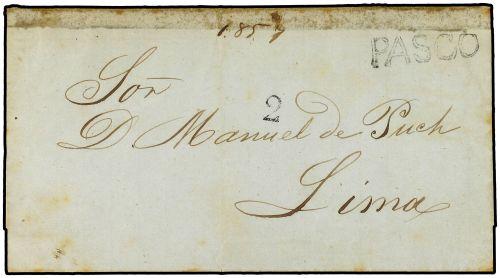 1857
PASCO
Sor
2
D Manuel de Puch
Lima